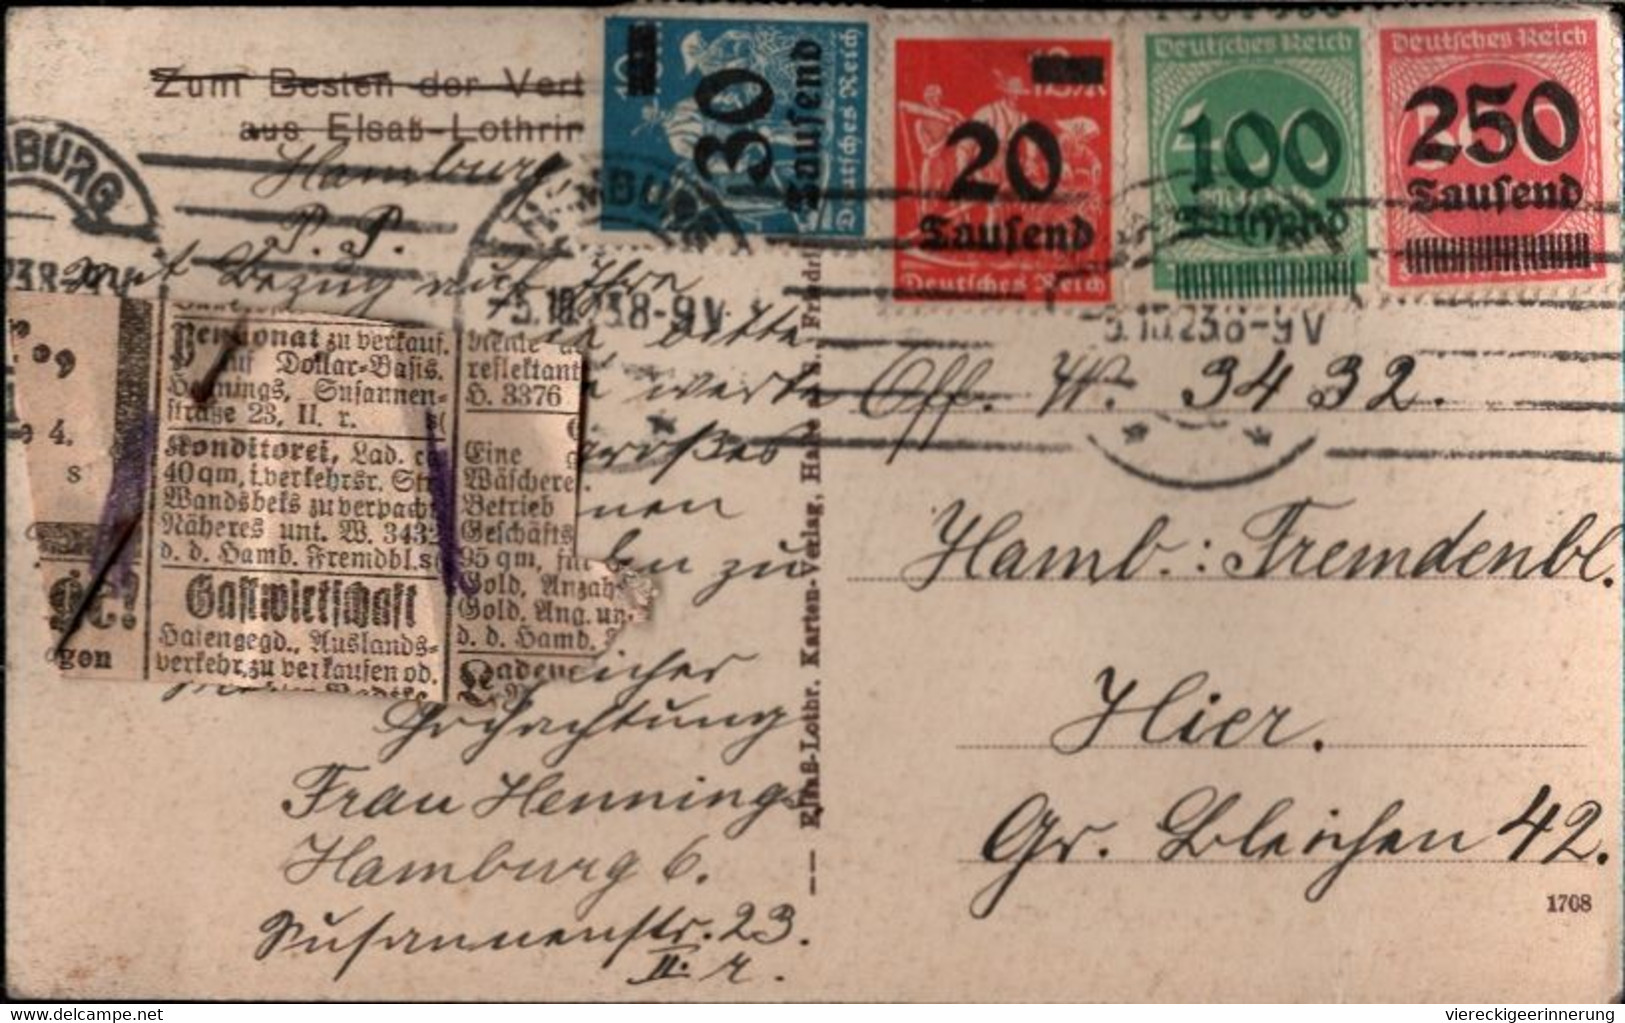 Zum Besten der Vert
aus Elsaß-Lothrin
Hamburg
P. P.
Mit Bezug auf Ihre
bitte
werte
großes
zu
Hochachtung
Frau Hennings
Hamburg 6.
Susannenstr. 23.
II. r.
Pensionat zu verkauf.
auf Dollar-Basis.
Hennings, Susannen-
straße 23, II. r.
Konditorei, Lad. c
40 qm, i. verkehrsr. Str
Wandsbeks zu verpacht
Näheres unt. W. 3432
d. d. Hamb. Fremdbl.
Gastwirtschaft
Hafengegd., Auslands-
verkehr, zu verkaufen od.
reflektant
H. 3376
Eine g
Wäschere
Betrieb
Geschäfts
95 qm, für
Gold, Anzah
Gold. Ang. un
d. d. Hamb.
gen
4.
s
BURG
HAMBURG
-5.10.23.8-9V
-5.10.23.8-9V
30 Tausend
Deutsches Reich
20
Tausend
Deutsches Reich
Deutsches Reich
100
Tausend
Deutsches Reich
250
Tausend
Elsaß-Lothr. Karten-Verlag, Halle a. S. Friedri
Off. W. 3432.
Hamb.: Fremdenbl.
Hier.
Gr. Bleichen 42.
1708
viereckigeerinnerung